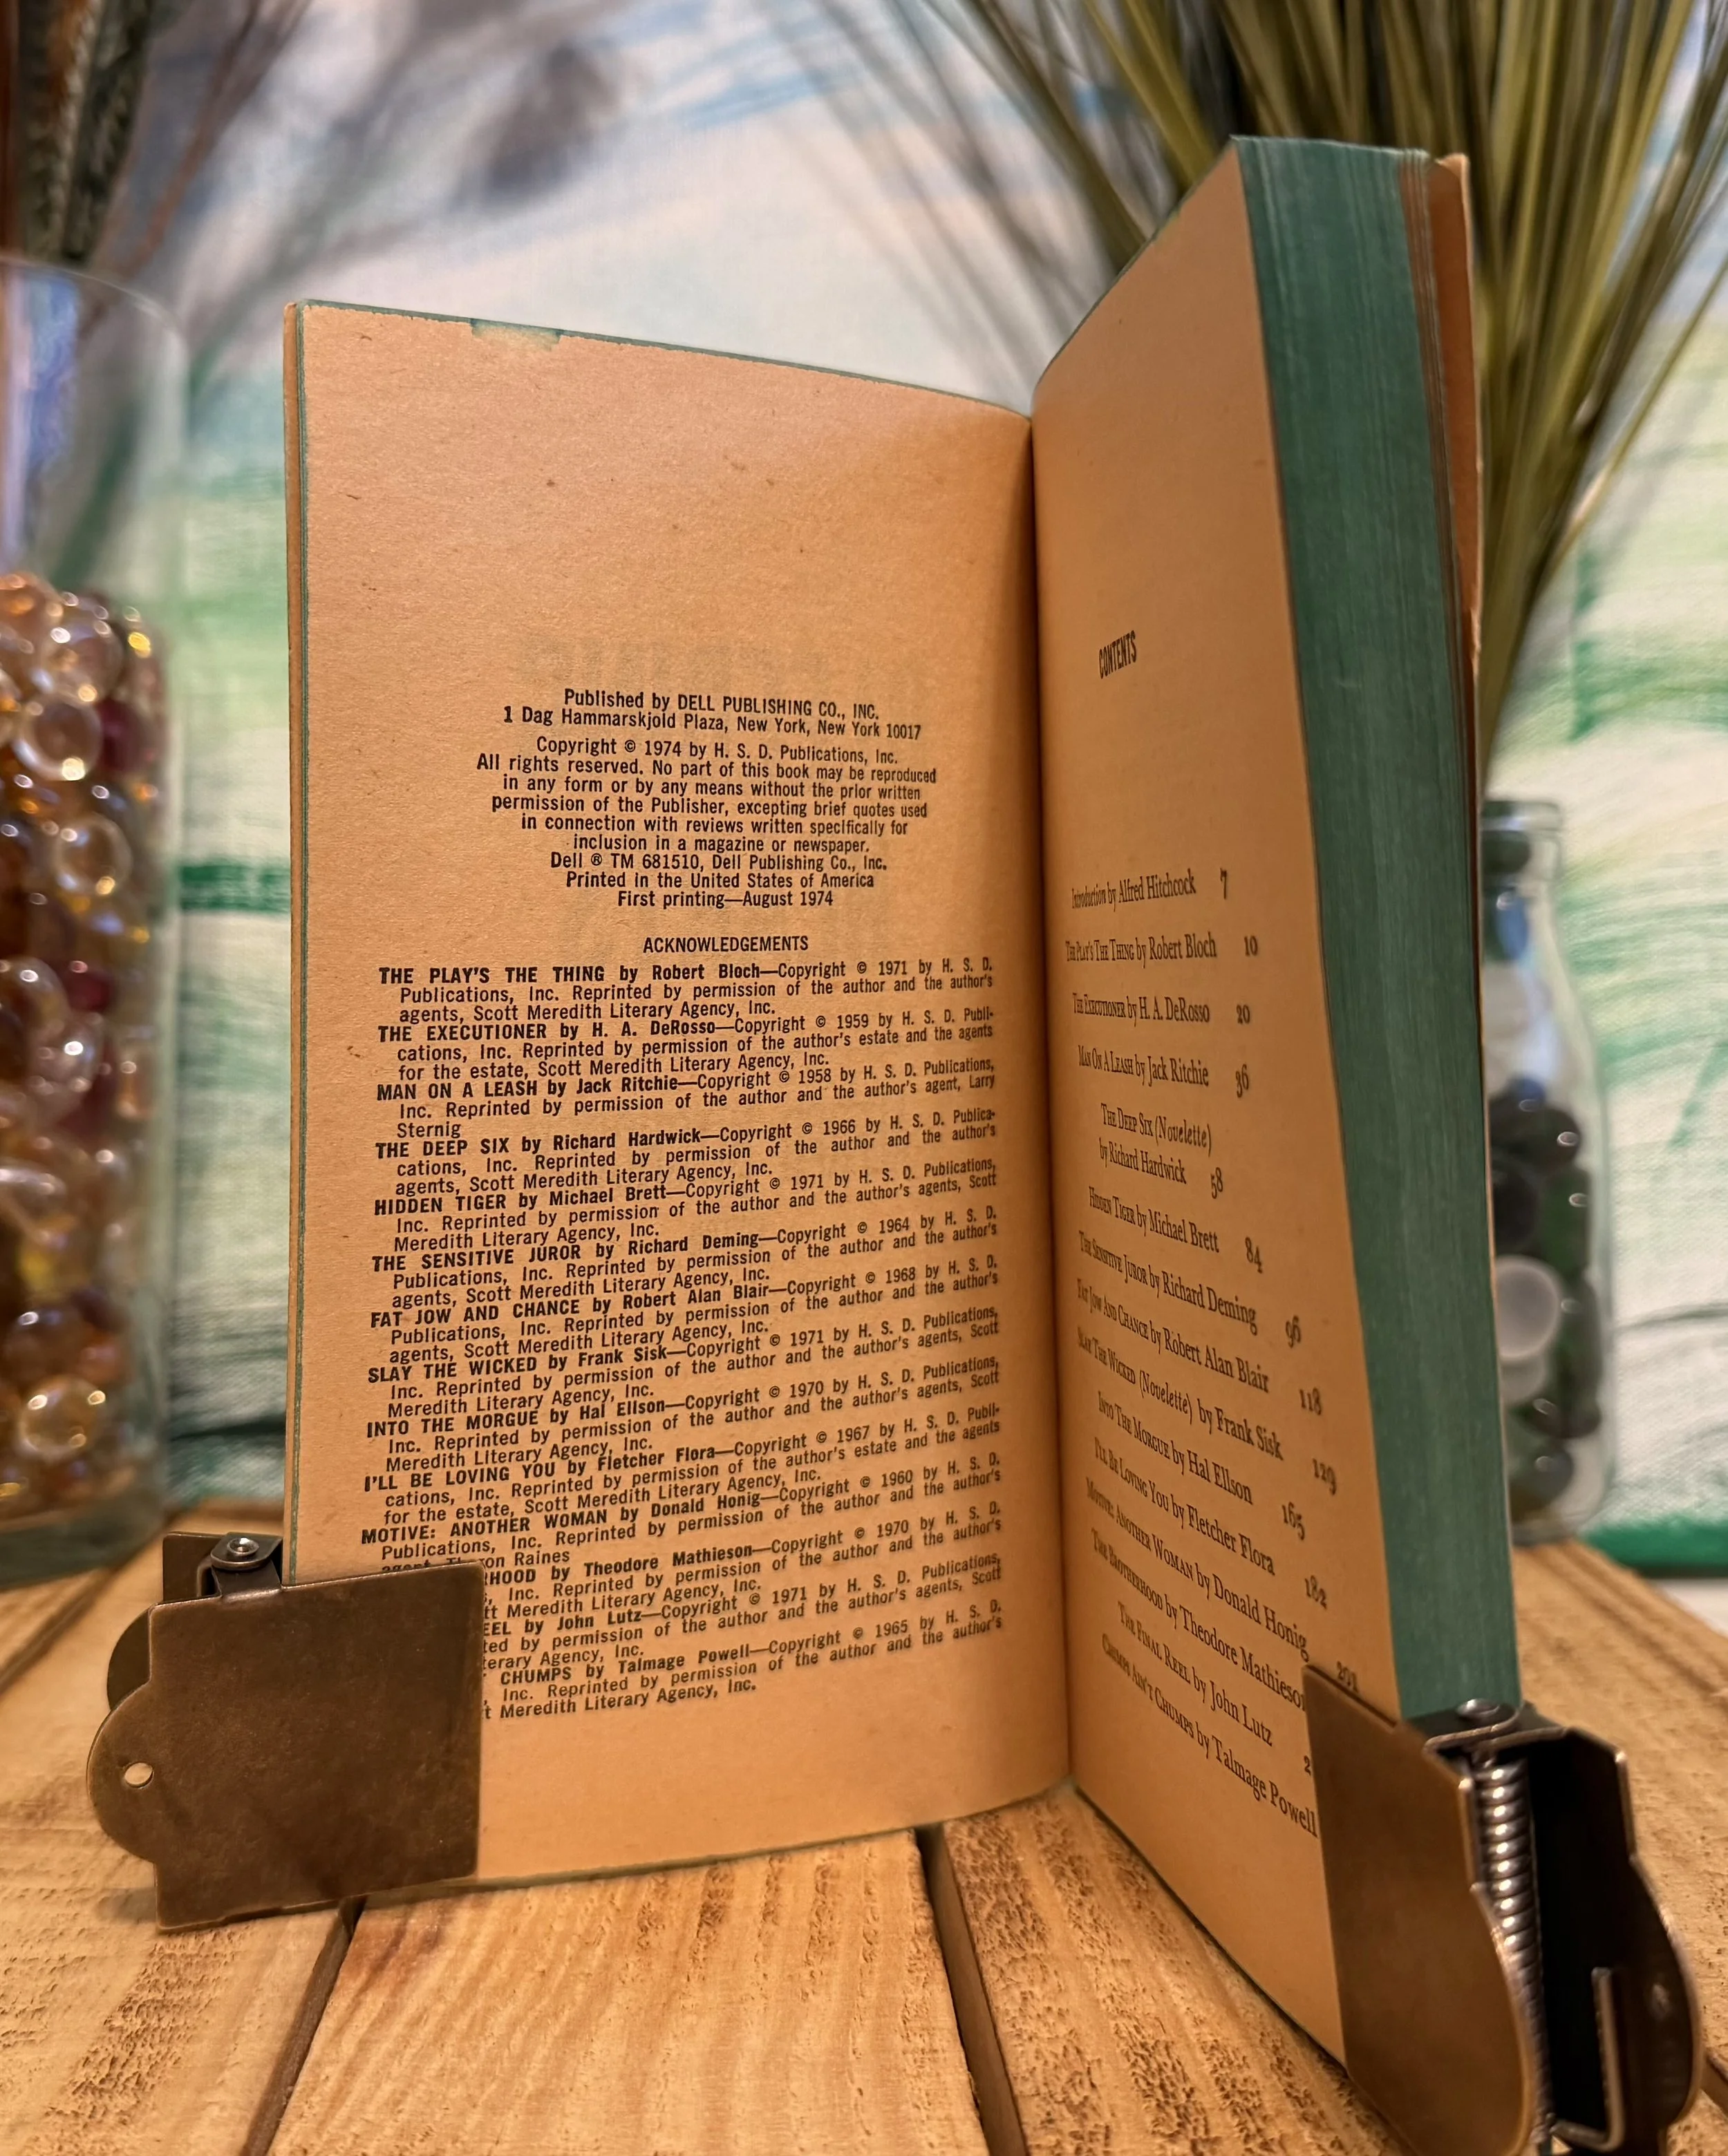 Published by DELL PUBLISHING CO., INC.
1 Dag Hammarskjold Plaza, New York, New York 10017
Copyright © 1974 by H. S. D. Publications, Inc.
All rights reserved. No part of this book may be reproduced
in any form or by any means without the prior written
permission of the Publisher, excepting brief quotes used
in connection with reviews written specifically for
inclusion in a magazine or newspaper.
Dell ® TM 681510, Dell Publishing Co., Inc.
Printed in the United States of America
First printing—August 1974
ACKNOWLEDGEMENTS
THE PLAY'S THE THING by Robert Bloch—Copyright © 1971 by H. S. D.
Publications, Inc. Reprinted by permission of the author and the author's
agents, Scott Meredith Literary Agency, Inc.
THE EXECUTIONER by H. A. DeRosso—Copyright © 1959 by H. S. D. Publi-
cations, Inc. Reprinted by permission of the author's estate and the agents
for the estate, Scott Meredith Literary Agency, Inc.
MAN ON A LEASH by Jack Ritchie—Copyright © 1958 by H. S. D. Publications,
Inc. Reprinted by permission of the author and the author's agent, Larry
Sternig
THE DEEP SIX by Richard Hardwick—Copyright © 1966 by H. S. D. Publica-
cations, Inc. Reprinted by permission of the author and the author's
agents, Scott Meredith Literary Agency, Inc.
HIDDEN TIGER by Michael Brett—Copyright © 1971 by H. S. D. Publications,
Inc. Reprinted by permission of the author and the author's agents, Scott
Meredith Literary Agency, Inc.
THE SENSITIVE JUROR by Richard Deming—Copyright © 1964 by H. S. D.
Publications, Inc. Reprinted by permission of the author and the author's
agents, Scott Meredith Literary Agency, Inc.
FAT JOW AND CHANCE by Robert Alan Blair—Copyright © 1968 by H. S. D.
Publications, Inc. Reprinted by permission of the author and the author's
agents, Scott Meredith Literary Agency, Inc.
SLAY THE WICKED by Frank Sisk—Copyright © 1971 by H. S. D. Publications,
Inc. Reprinted by permission of the author and the author's agents, Scott
Meredith Literary Agency, Inc.
INTO THE MORGUE by Hal Ellson—Copyright © 1970 by H. S. D. Publications,
Inc. Reprinted by permission of the author and the author's agents, Scott
Meredith Literary Agency, Inc.
I'LL BE LOVING YOU by Fletcher Flora—Copyright © 1967 by H. S. D. Publi-
cations, Inc. Reprinted by permission of the author's estate and the agents
for the estate, Scott Meredith Literary Agency, Inc.
MOTIVE: ANOTHER WOMAN by Donald Honig—Copyright © 1960 by H. S. D.
Publications, Inc. Reprinted by permission of the author and the author's
Raines
HOOD by Theodore Mathieson—Copyright © 1970 by H. S. D.
Inc. Reprinted by permission of the author and the author's
tt Meredith Literary Agency, Inc.
EEL by John Lutz—Copyright © 1971 by H. S. D. Publications,
ted by permission of the author and the author's agents, Scott
terary Agency, Inc.
CHUMPS by Talmage Powell—Copyright © 1965 by H. S. D.
, Inc. Reprinted by permission of the author and the author's
t Meredith Literary Agency, Inc.
CONTENTS
Introduction by Alfred Hitchcock 7
THE PLAY'S THE THING by Robert Bloch 10
THE EXECUTIONER by H. A. DeRosso 20
MAN ON A LEASH by Jack Ritchie 36
THE DEEP SIX (Novelette)
by Richard Hardwick 58
HIDDEN TIGER by Michael Brett 84
THE SENSITIVE JUROR by Richard Deming 96
FAT JOW AND CHANCE by Robert Alan Blair 118
SLAY THE WICKED (Novelette) by Frank Sisk 129
INTO THE MORGUE by Hal Ellson 165
I'LL BE LOVING YOU by Fletcher Flora 182
MOTIVE: ANOTHER WOMAN by Donald Honig 201
THE BROTHERHOOD by Theodore Mathieson
THE FINAL REEL by John Lutz 2
CHUMPS AIN'T CHUMPS by Talmage Powell